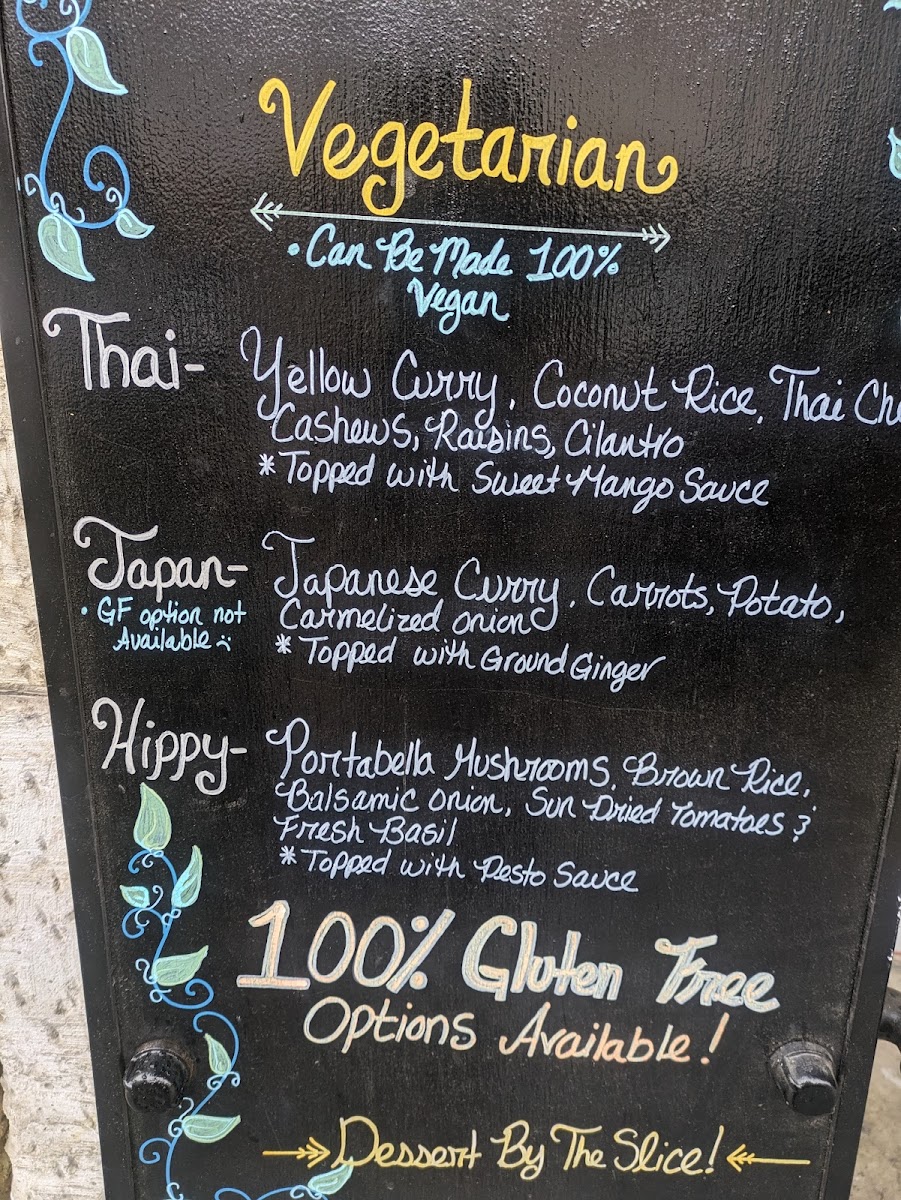 Vegetarian
• Can Be Made 100%
Vegan
Thai- Yellow Curry, Coconut Rice, Thai
Cashews, Raisins, Cilantro
*Topped with Sweet Mango Sauce
Japan- Japanese Curry, Carrots, Potato,
• GF option not
Available :(
Carmelized onion
* Topped with Ground Ginger
Hippy- Portabella Mushrooms, Brown Rice,
Balsamic onion, Sun Dried Tomatoes &
Fresh Basil
*Topped with Pesto Sauce
100% Gluten Free
Options Available!
Dessert By The Slice!